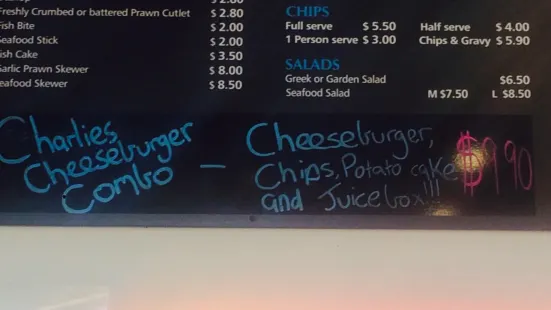 $ 2.60
Freshly Crumbed or battered Prawn Cutlet $ 2.80
Fish Bite $ 2.00
Seafood Stick $ 2.00
Fish Cake $ 3.50
Garlic Prawn Skewer $ 8.00
Seafood Skewer $ 8.50
CHIPS
Full serve $ 5.50 Half serve $ 4.00
1 Person serve $ 3.00 Chips & Gravy $ 5.90
SALADS
Greek or Garden Salad $6.50
Seafood Salad M $7.50 L $8.50
Charlies
Cheeseburger
Combo
- Cheeseburger,
Chips, Potato cake
and Juicebox!!!
$9.90